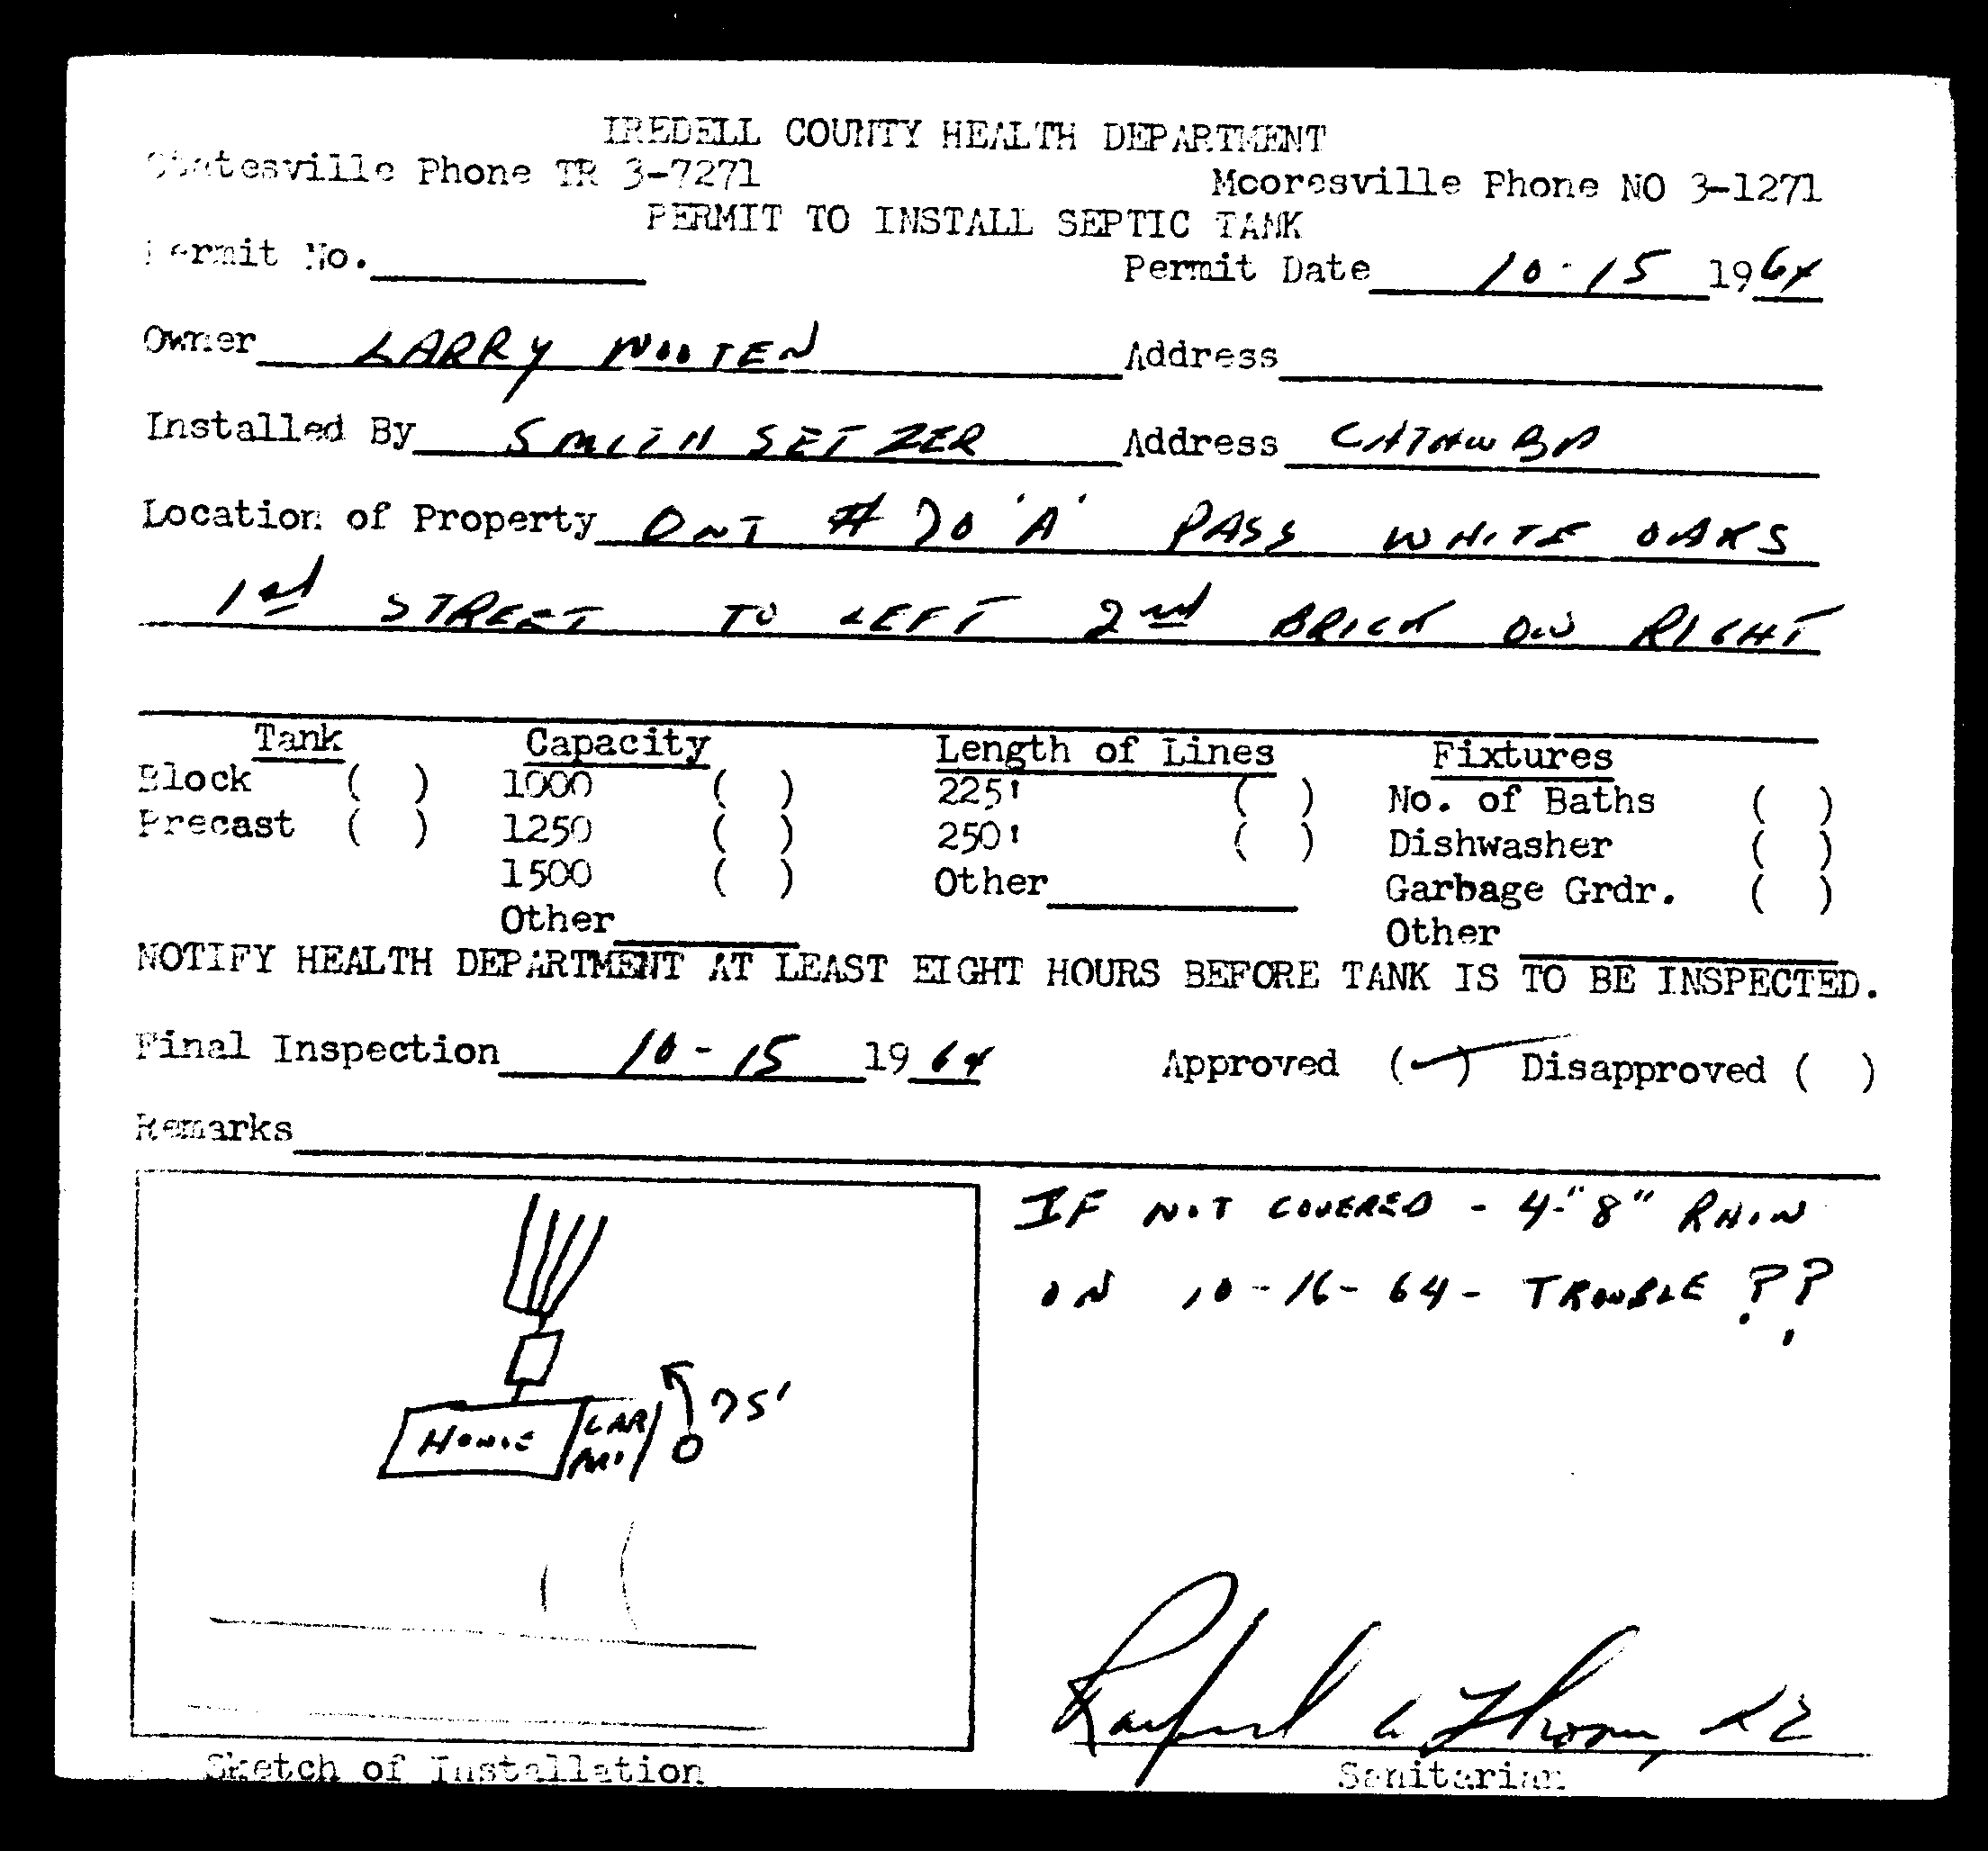 IREDELL COUNTY HEALTH DEPARTMENT
Statesville Phone TR 3-7271 Mooresville Phone NO 3-1271
PERMIT TO INSTALL SEPTIC TANK
Permit No. Permit Date 10-15 1964
Owner LARRY WOOTEN Address
Installed By SMITH SETZER Address CATAWBA
Location of Property # 70 'A' PASS WHITE OAKS
1st STREET TO LEFT 2nd BRICK ON RIGHT
Tank Capacity Length of Lines Fixtures
Block ( ) 1000 ( ) 225' ( ) No. of Baths ( )
Precast ( ) 1250 ( ) 250' ( ) Dishwasher ( )
1500 ( ) Other Garbage Grdr. ( )
Other Other
NOTIFY HEALTH DEPARTMENT AT LEAST EIGHT HOURS BEFORE TANK IS TO BE INSPECTED.
Final Inspection 10-15 1964 Approved (✓) Disapproved ( )
Remarks
IF NOT COVERED - 4-"8" RAIN
ON 10-16-64 - TROUBLE ??
75'
HOUSE CAR
Sketch of Installation Sanitarian